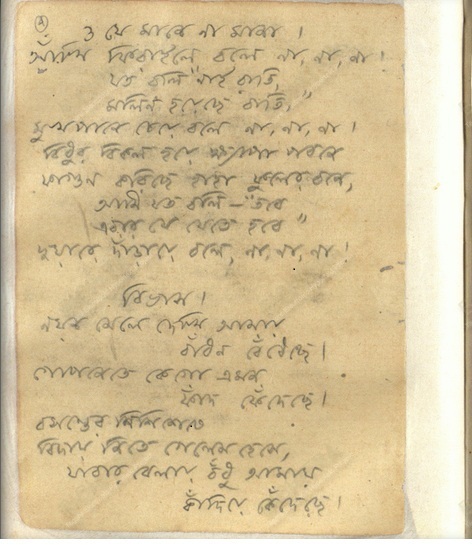 ও যে মানে না মানা।
আঁখি ফিরাইলে বলে না, না, না!
যত বলি "নাই রাতি,
মলিন হয়েছে বাতি,"
মুখপানে চেয়ে বলে না, না, না।
বিধুর বিকল হয়ে ক্ষ্যাপা পবনে
ফাগুন করিছে হাহা ফুলের বনে,
আমি যত বলি — "তবে
এবার যে যেতে হবে"
দুয়ারে দাঁড়ায়ে বলে, না, না, না!
বিভাস।
নয়ন মেলে দেখি আমায়
বাঁধন বেঁধেছে।
গোপনেতে কেগো এমন
ফাঁদ ফেঁদেছে।
বসন্তের নিশিশেষে
বিদায় নিতে গেলেম হেসে,
যাবার বেলায় বঁধু আমায়
কাঁদিয়ে কেঁদেছে।